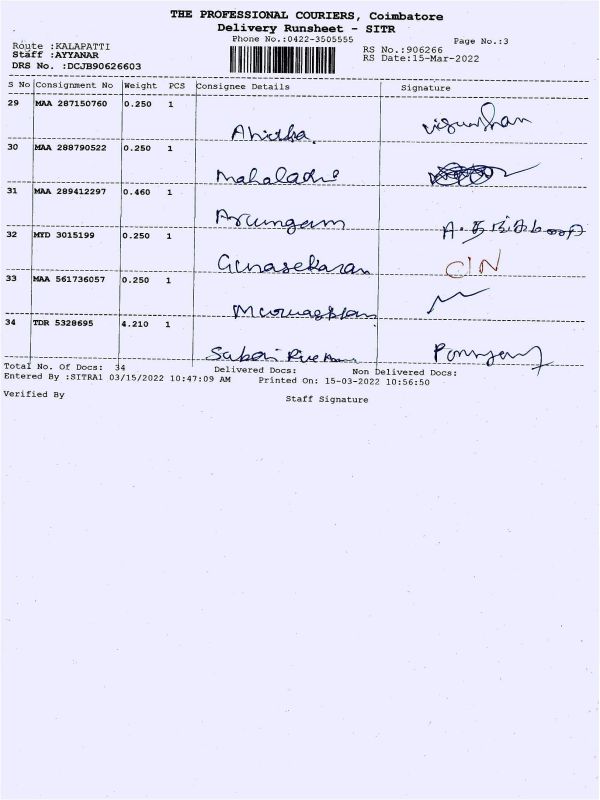 THE PROFESSIONAL COURIERS, Coimbatore
Delivery Runsheet - SITR
Phone No.:0422-3505555
Page No.:3
Route :KALAPATTI
RS No.:906266
Staff :AYYANAR
RS Date:15-Mar-2022
DRS No. :DCJB90626603
S No Consignment No Weight PCS Consignee Details Signature
29 MAA 287150760 0.250 1
30 MAA 288790522 0.250 1
Mahalaxmi
31 MAA 289412297 0.460 1
Arumgam
32 MYD 3015199 0.250 1
Gunasekaran CIN
33 MAA 561736057 0.250 1
34 TDR 5328695 4.210 1
Sabari
Total No. Of Docs: 34 Delivered Docs: Non Delivered Docs:
Entered By :SITRA1 03/15/2022 10:47:09 AM Printed On: 15-03-2022 10:56:50
Verified By
Staff Signature